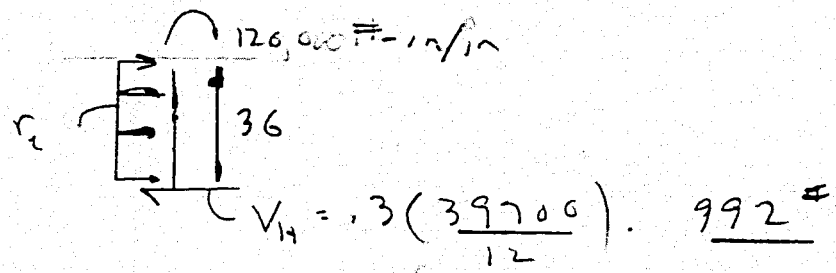 120,000 #-in/in
r₂
36
V_H = .3 (39700/12). 992 #